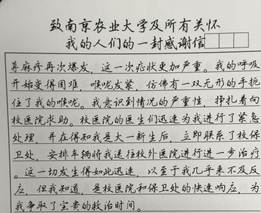 致南京农业大学及所有关怀
我的人们的一封感谢信
荨麻疹再次爆发，这一次症状更加严重。我的呼吸
开始变得困难，喉咙发紧，仿佛有一双无形的手扼
住了我的喉咙。我意识到情况的严重性，挣扎着向
校医院求助。校医院的医生们迅速为我进行了紧急
处理，并在得知我是大一新生后，立即联系了校保
卫处，安排车辆将我送往校外医院进行进一步治疗
。这一切发生得如此迅速，以至于我几乎来不及反
应，但我知道，是校医院和保卫处的快速响应，为
我争取了宝贵的救治时间。